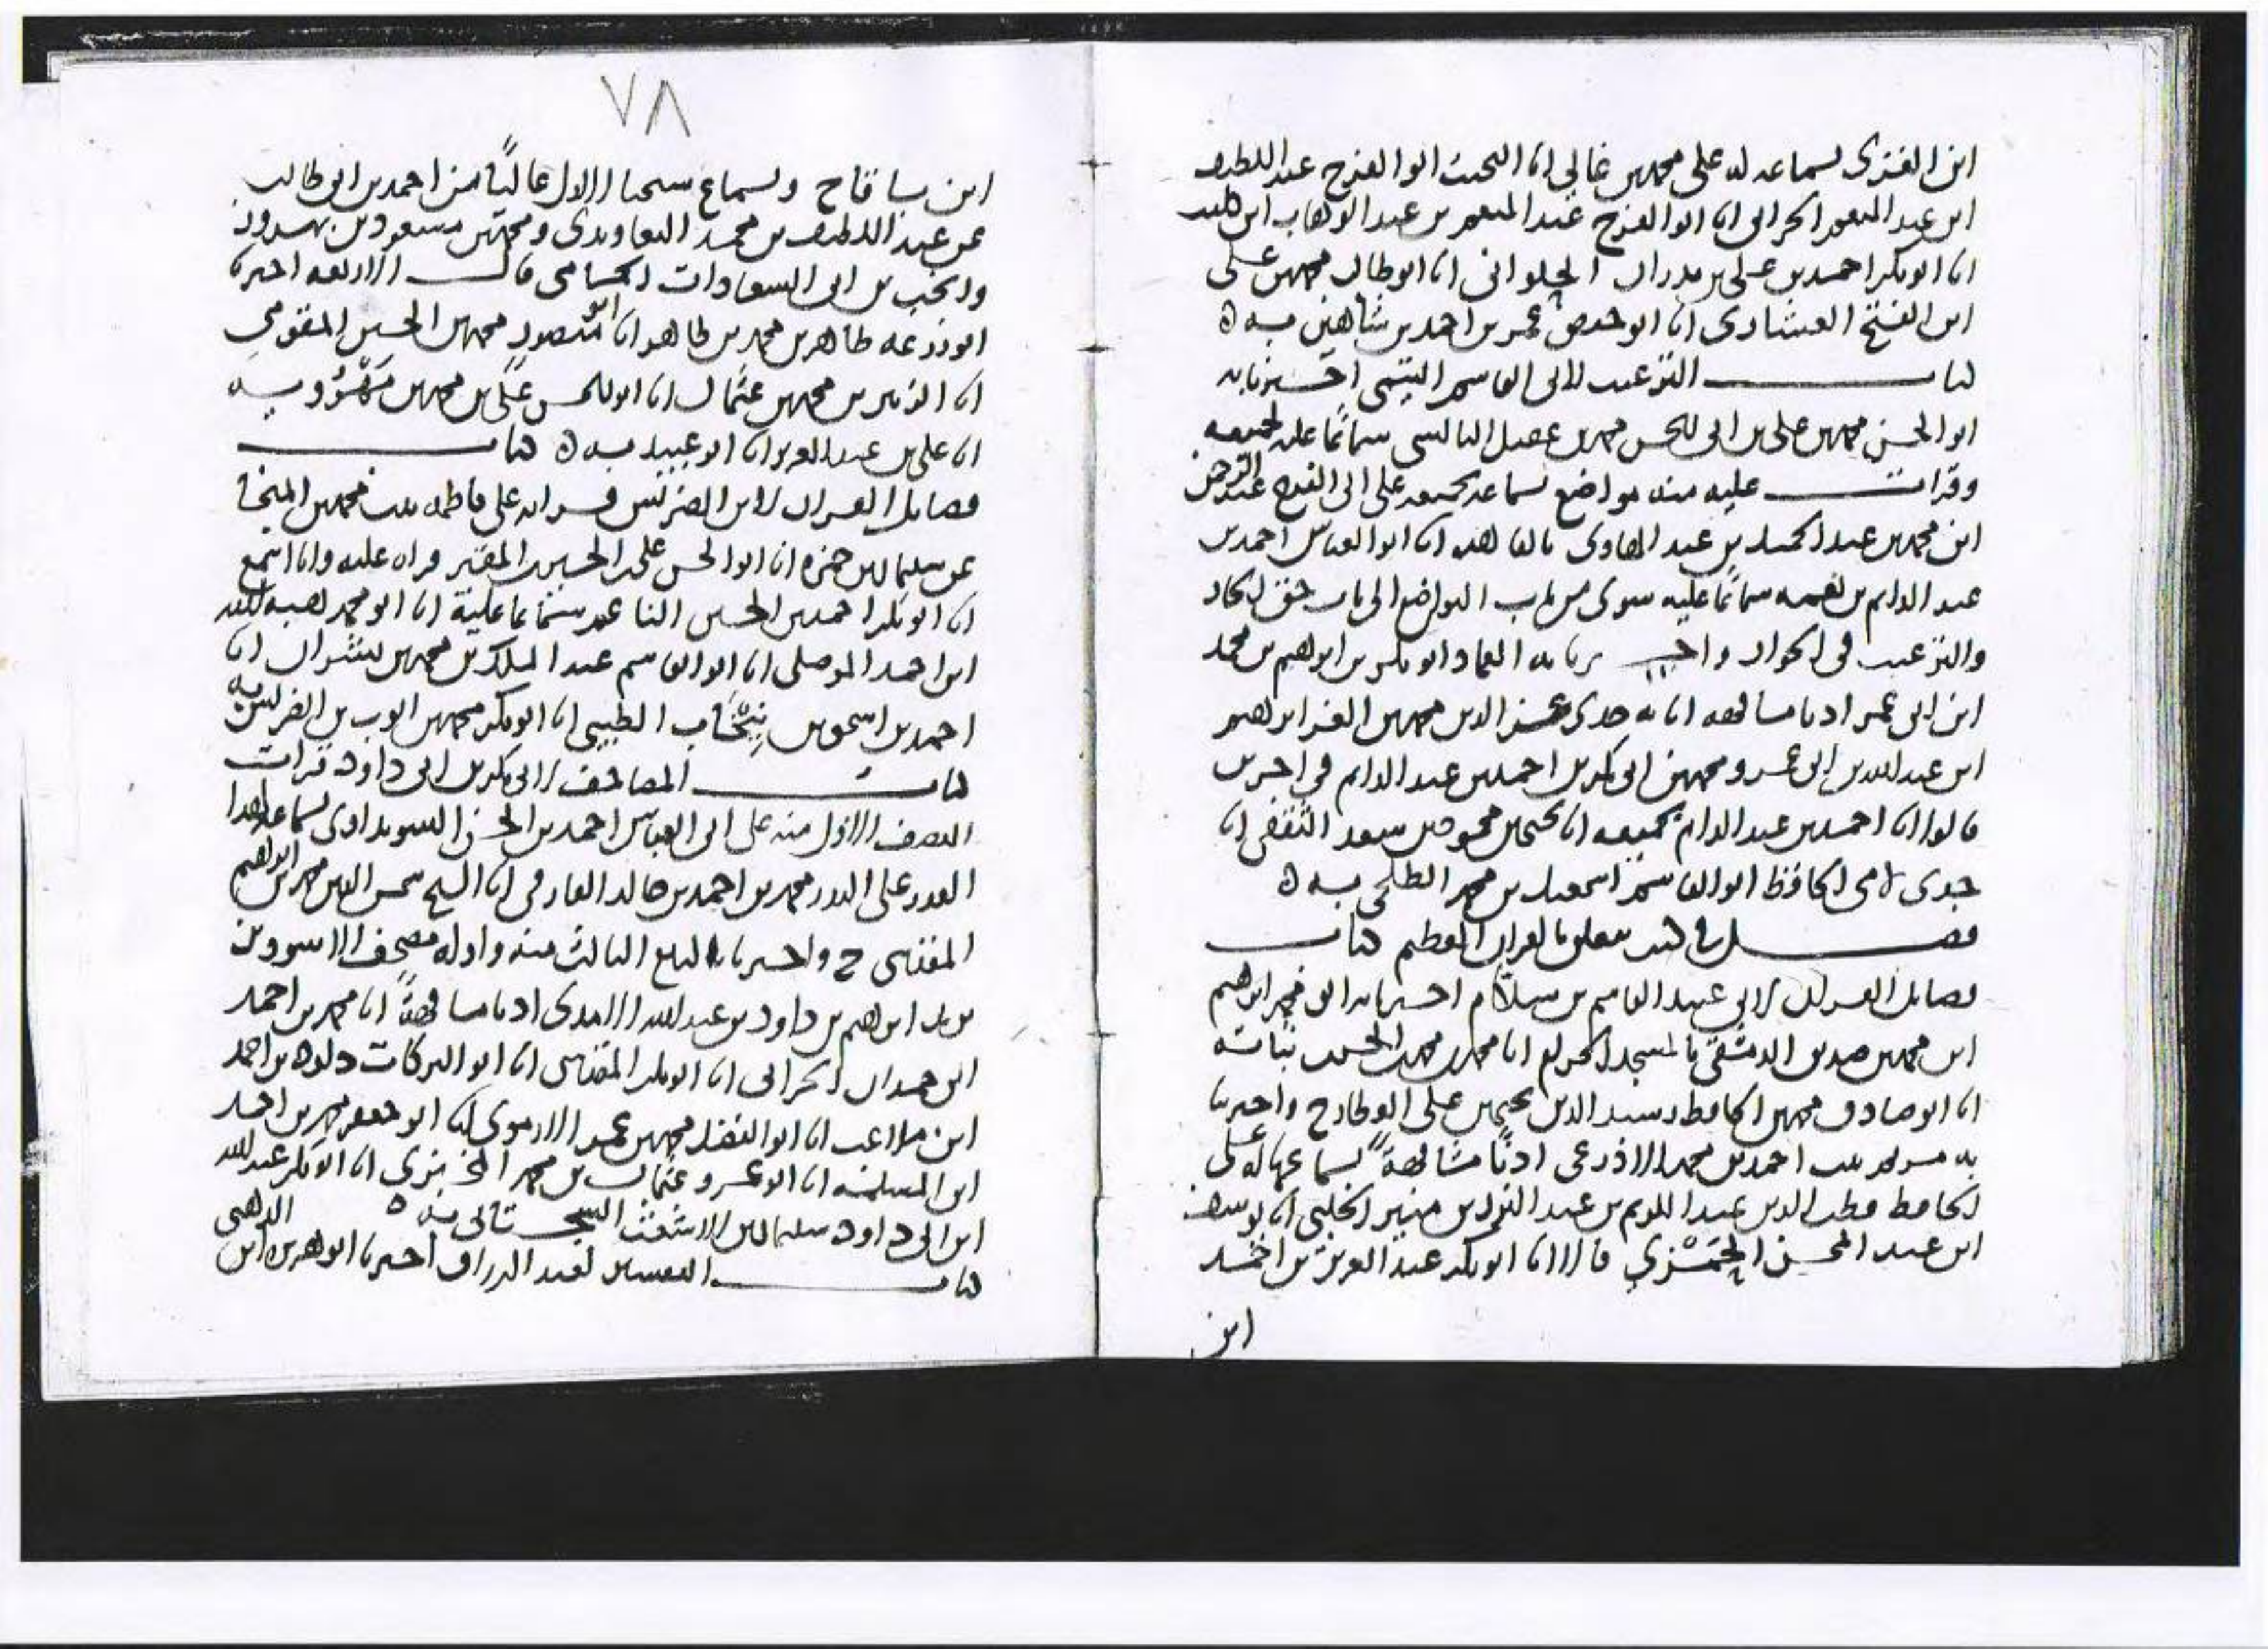 ابن الغزى بسماعه له على محمد بن غالي انا النجيب ابو الفرج عبد اللطيف
ابن عبد المنعم الحراني انا ابو الفرج عبد المنعم بن عبد الوهاب ابن كليب
انا ابو بكر احمد بن علي بن بدران الحلواني انا ابو طالب محمد بن علي
ابن الفتح العشاري انا ابو حفص عمر بن احمد بن شاهين به ه
كتاب الترغيب لابي القاسم التيمي اخبرنا به
ابو الحسن محمد بن علي بن ابي الحسن محمد بن عقيل البالسي سماعا عليه لجميعه
وقرات عليه منه مواضع بسماعه لجميعه على ابي الفرج عبد الرحمن
ابن محمد بن عبد الحميد بن عبد الهادي بالقاهره انا ابو العباس احمد بن
عبد الدايم بن نعمه سماعا عليه سوى من باب التواضع الى باب حق الجار
والترغيب في الجوار واخبرنا به العماد ابو بكر بن ابراهيم بن محمد
ابن ابي عمر اذنا مشافهه انا به جدي عز الدين محمد بن العز ابراهيم
ابن عبد الله بن ابي عمر ومحمد بن ابي بكر بن احمد بن عبد الدايم في اخرين
قالوا انا احمد بن عبد الدايم بجميعه انا يحيى بن محمود بن سعد الثقفي انا
جدي لامي الحافظ ابو القاسم اسمعيل بن محمد الطلحي به ه
فصل في كتب تتعلق بالقران العظيم كتاب
فضايل القران لابي عبيد القاسم بن سلام اخبرنا به ابو محمد ابراهيم
ابن محمد بن صديق الدمشقي بالمسجد الحرام انا محمد بن محمد بن الحسن بن نباته
انا ابو صادق محمد بن الحافظ رشيد الدين يحيى بن علي العطار ح واخبرتنا
به مريم بنت احمد بن محمد الاذرعي اذنا مشافهة بسماعها له على
الحافظ قطب الدين عبد الكريم بن عبد النور بن منير الحلبي انا يوسف
ابن عبد المحسن الحمزي قالا انا ابو بكر عبد العزيز بن احمد
ابن
٧٨
ابن باقا ح وبسماع شيخنا الاول عاليا من احمد بن ابي طالب
عن عبد اللطيف بن محمد التعاويذي ومحمد بن مسعود بن بهروز
وانجب بن ابي السعادات الحمامي قال الاربعه اخبرنا
ابو زرعه طاهر بن محمد بن طاهر انا ابو منصور محمد بن الحسين المقومي
انا الزبير بن محمد بن عثمان انا ابو الحسن علي بن محمد بن مهرويه
انا علي بن عبد العزيز انا ابو عبيد به ه كتاب
فضايل القران لابن الضريس قراته على فاطمه بنت محمد بن المنجا
عن سليمان بن حمزه انا ابو الحسن علي بن الحسين بن المقير قراه عليه وانا اسمع
انا ابو بكر احمد بن الحسين الناعم سماعا عليه انا ابو محمد هبه الله
ابن احمد الموصلي انا ابو القاسم عبد الملك بن محمد بن بشران انا
احمد بن اسحق بن نيخاب الطيبي انا ابو بكر محمد بن ايوب بن الضريس به
كتاب المصاحف لابي بكر بن ابي داود قرات
النصف الاول منه على ابي العباس احمد بن الحسن السويداوي بسماعه لهذا
القدر على البدر محمد بن احمد بن خالد الفارقي انا الشيخ شمس الدين محمد بن ابراهيم
المقدسي ح واخبرنا بالربع الثالث منه واوله مصحف الاسود بن
يزيد ابراهيم بن داود بن عبد الله الامدي اذنا مشافهة انا محمد بن احمد
ابن حمدان الحراني انا ابو بكر المقدسي انا ابو البركات داود بن احمد
ابن ملاعب انا ابو الفضل محمد بن عمر الارموي انا ابو جعفر محمد بن احمد
ابن المسلمه انا ابو عمرو عثمان بن محمد انا ابو بكر عبد الله
ابن ابي داود سليمان بن الاشعث السجستاني به ه
كتاب التفسير لعبد الرزاق اخبرنا ابو هريره ابن الذهبي